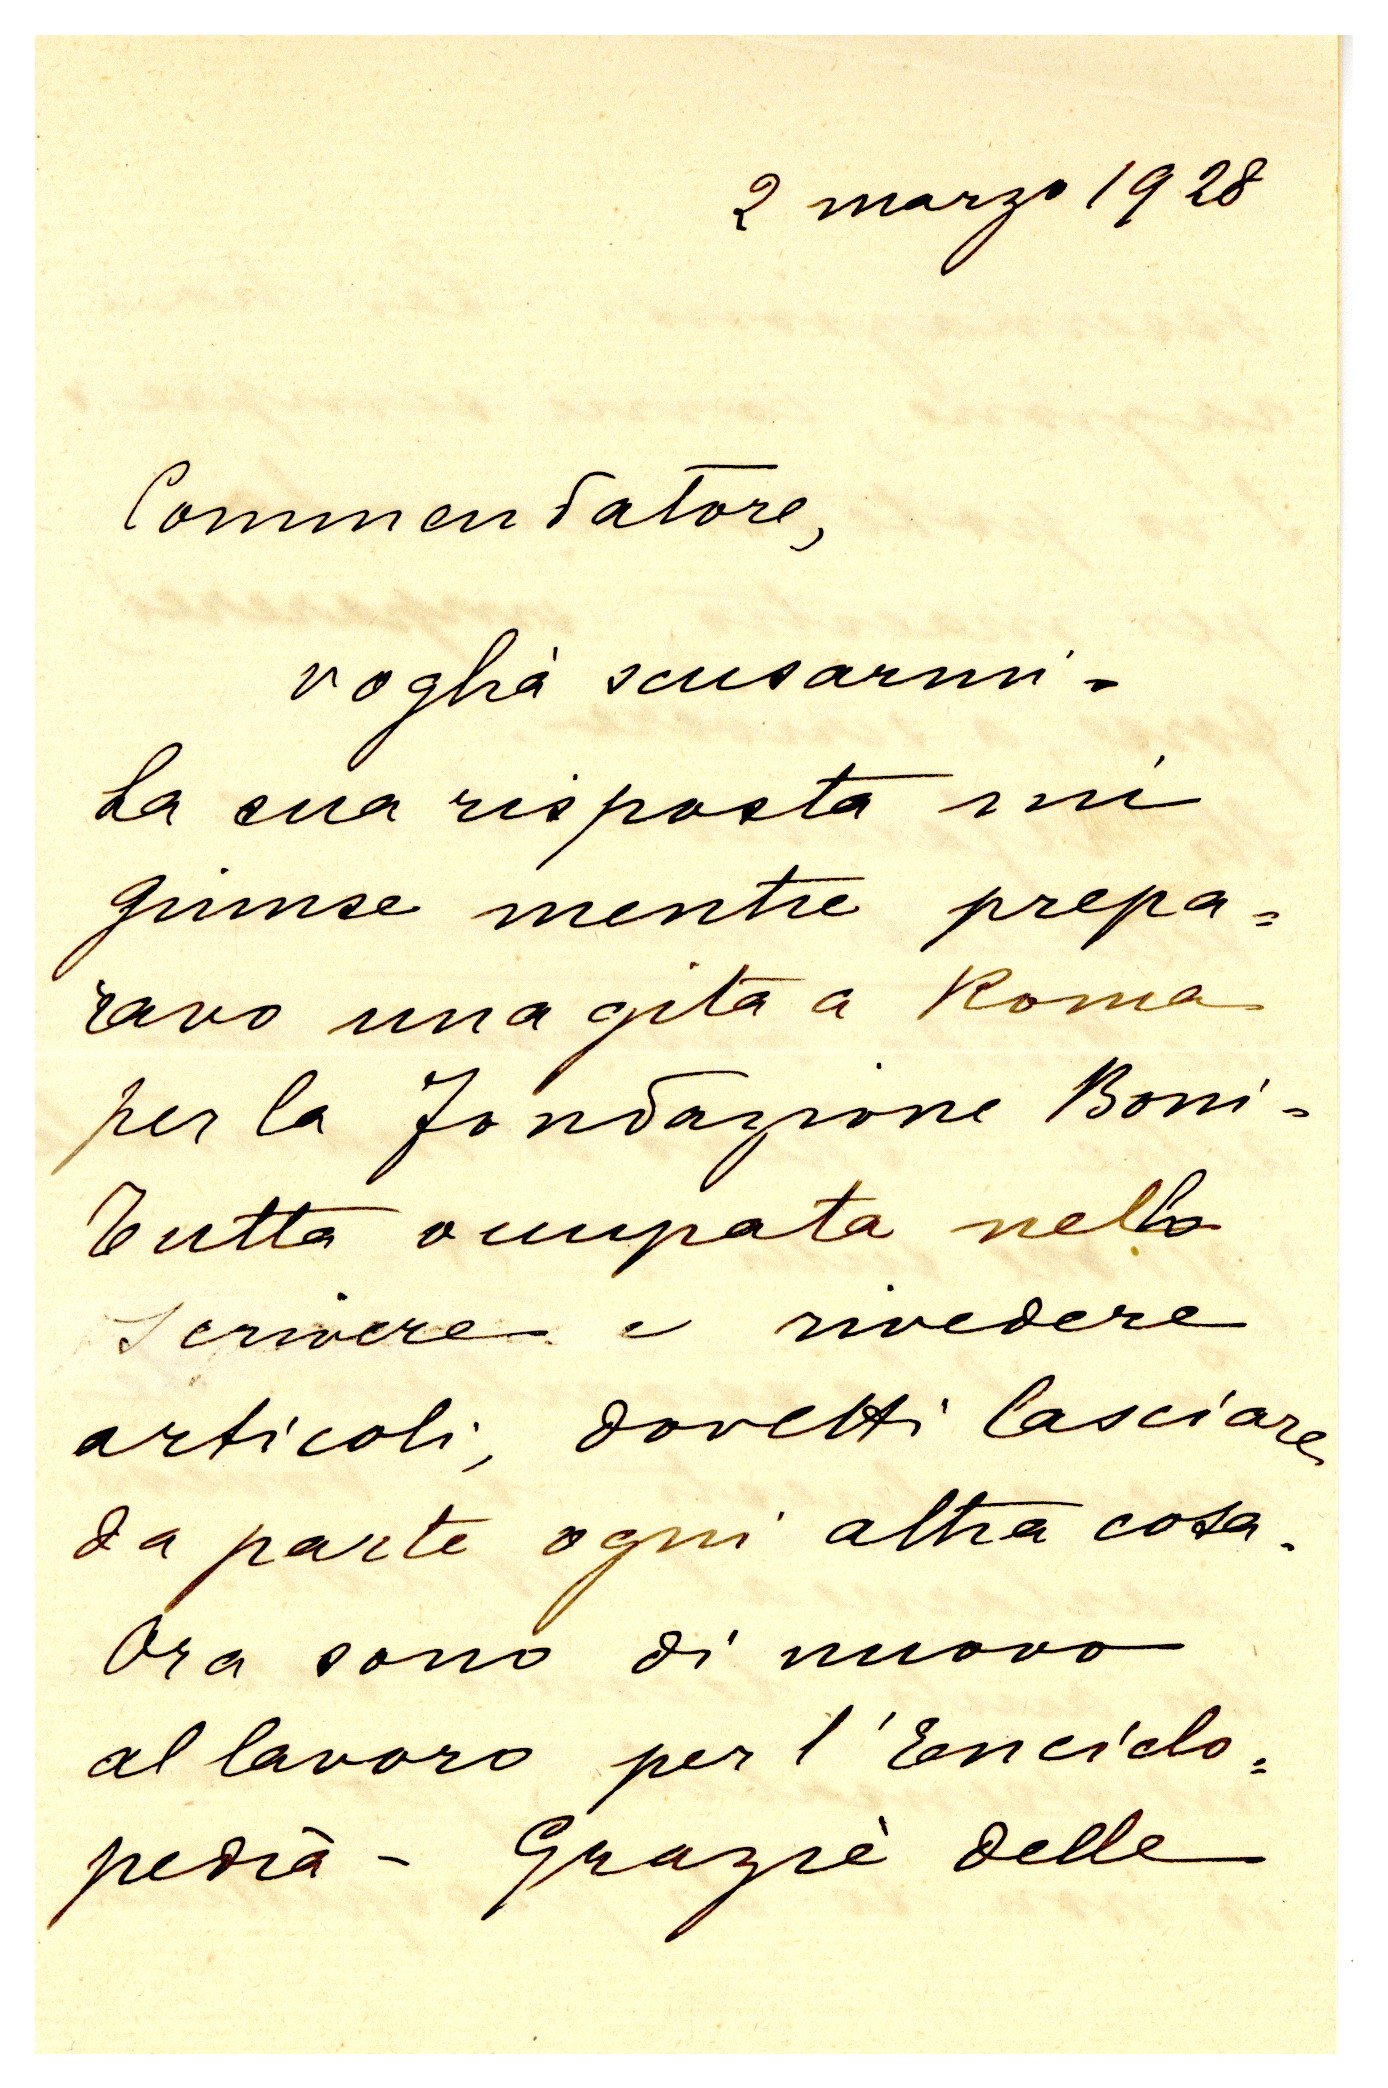 2 marzo 1928
Commendatore,
voglia scusarmi -
La sua risposta mi
giunse mentre prepa=
ravo una gita a Roma
per la Fondazione Boni -
Tutta occupata nello
scrivere e rivedere
articoli, dovetti lasciare
da parte ogni altra cosa.
Ora sono di nuovo
al lavoro per l'Enciclo=
pedia - Grazie delle